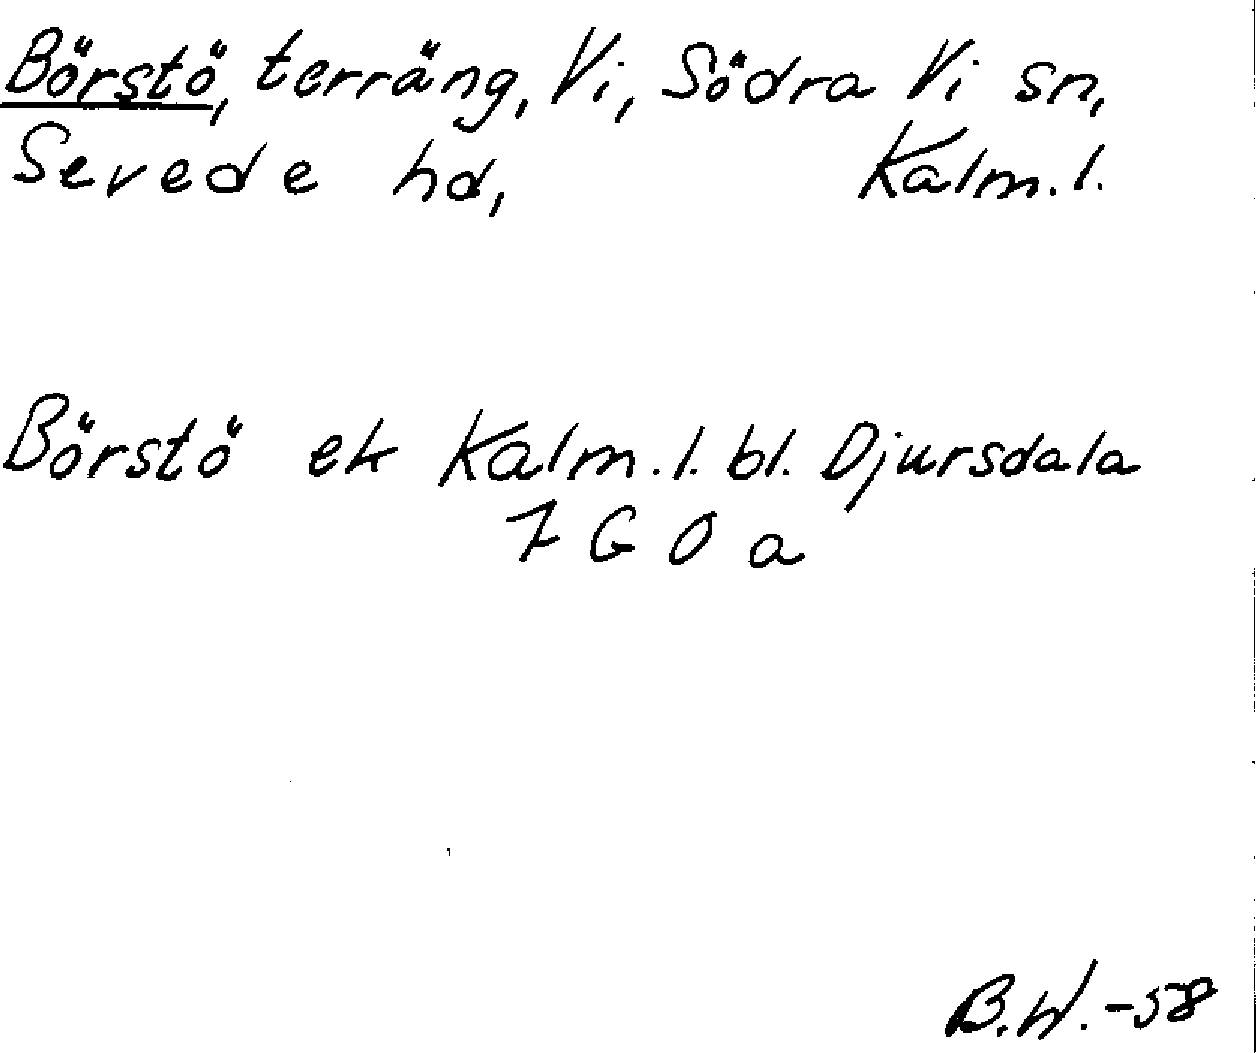 Börstö, terräng, Vi, Södra Vi sn,
Sevede hd, Kalm.l.
Börstö ek Kalm.l. bl. Djursdala
7 G 0 a
B.W.-58